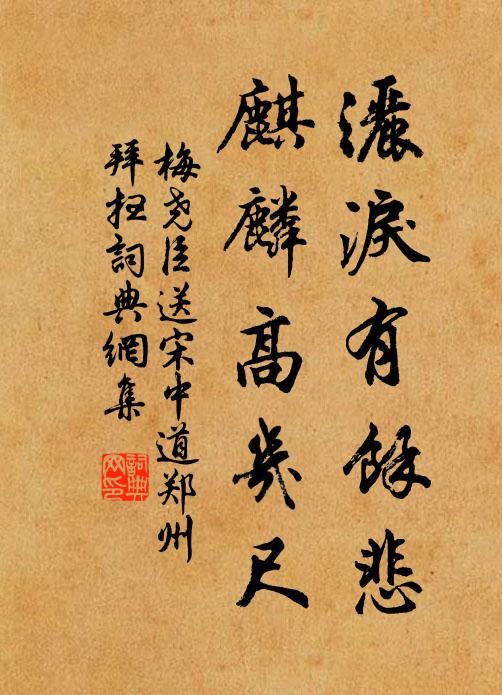 灑淚有餘悲
麒麟高幾尺
梅尧臣送宋中道郑州
拜扫詞典網集
詞典网印